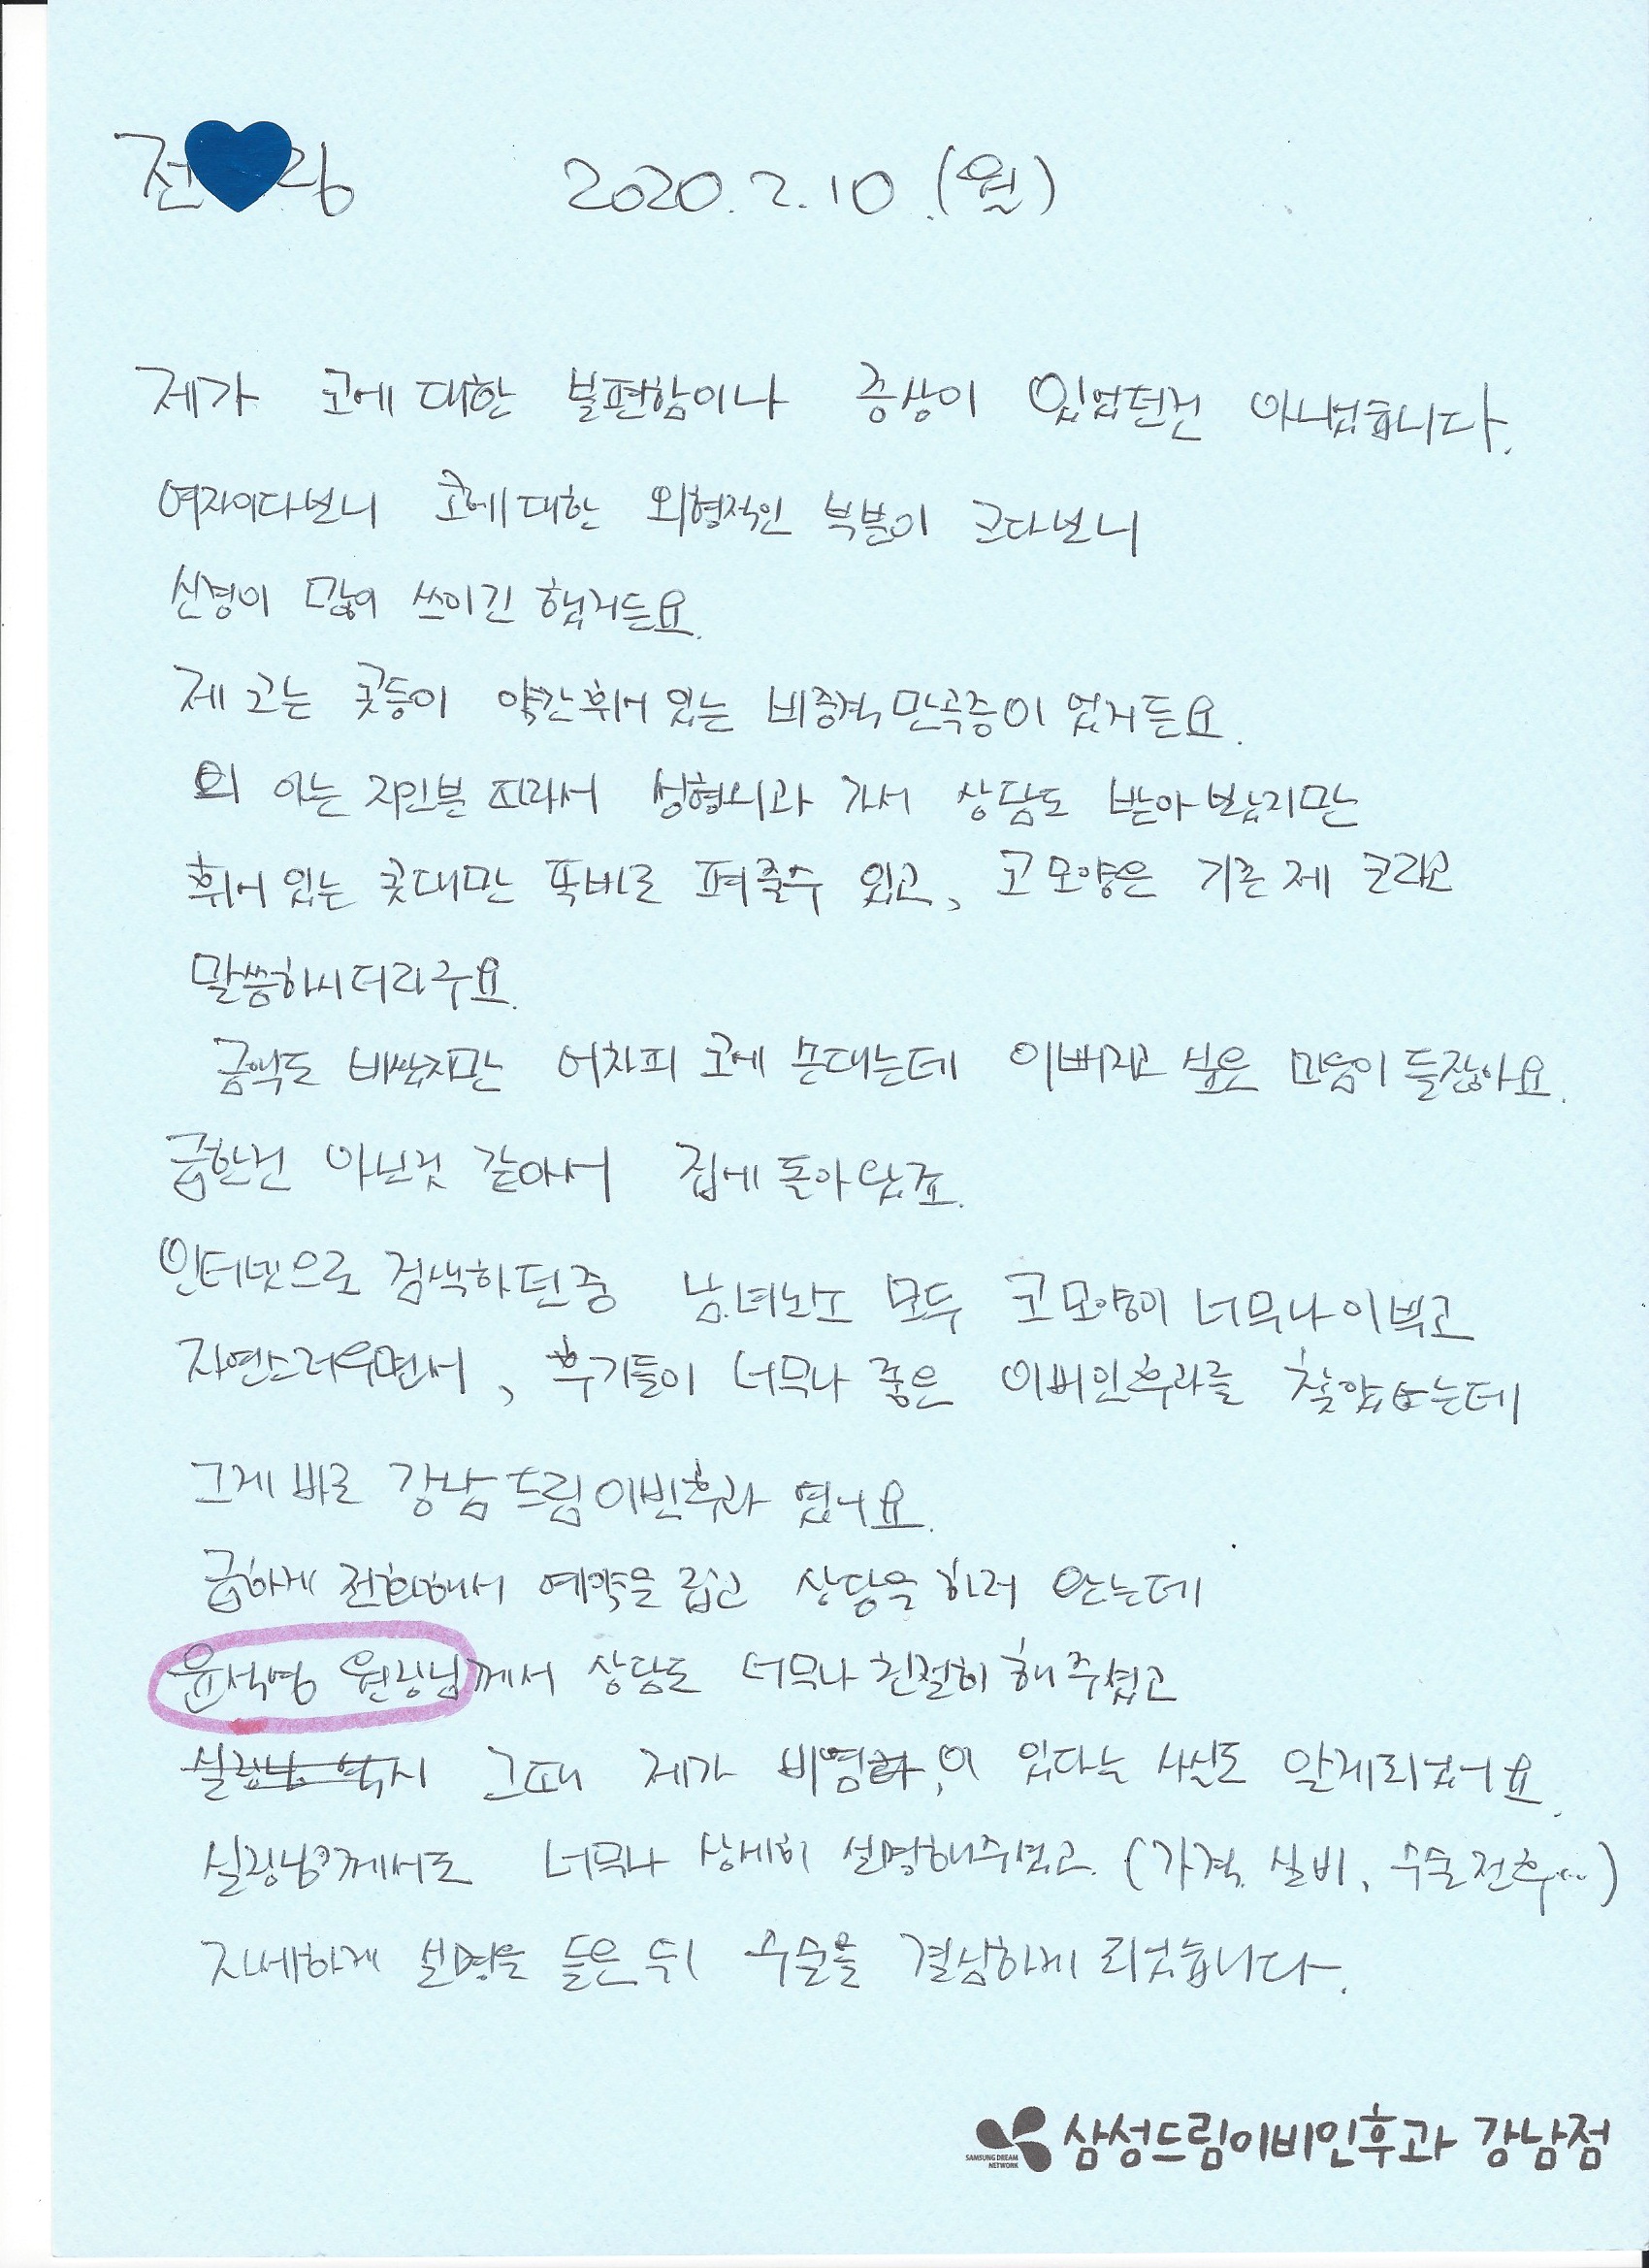 전 랑 2020.2.10.(월)
제가 코에 대한 불편함이나 증상이 있었던건 아니었습니다.
여자이다보니 코에대한 외형적인 부분이 크다보니
신경이 많이 쓰이긴 했거든요.
제 코는 콧등이 약간휘어 있는 비중격만곡증이 있거든요.
아는 지인분 따라서 성형외과 가서 상담도 받아 보았지만
휘어 있는 콧대만 똑바로 펴줄수 있고, 코 모양은 기존 제 코라고
말씀하시더라구요.
금액도 비쌌지만 어차피 코에 손대는데 이뻐지고 싶은 마음이 들잖아요.
급한건 아닌것 같아서 집에 돌아왔죠.
인터넷으로 검색하던중 남.녀노소 모두 코모양이 너무나 이쁘고
자연스러우면서, 후기들이 너무나 좋은 이비인후과를 찾았는데
그게 바로 강남드림이빈후과 였어요.
급하게 전화해서 예약을 잡고 상담을 하러 왔는데
윤석영 원장님께서 상담도 너무나 친절히 해주셨고
그때 제가 비염이 있다는 사실도 알게되었어요.
실장님께서도 너무나 상세히 설명해주셨고. (가격, 실비, 수술전후...)
자세하게 설명을 들은 뒤 수술을 결심하게 되었습니다.
SAMSUNG DREAM
NETWORK
삼성드림이비인후과 강남점